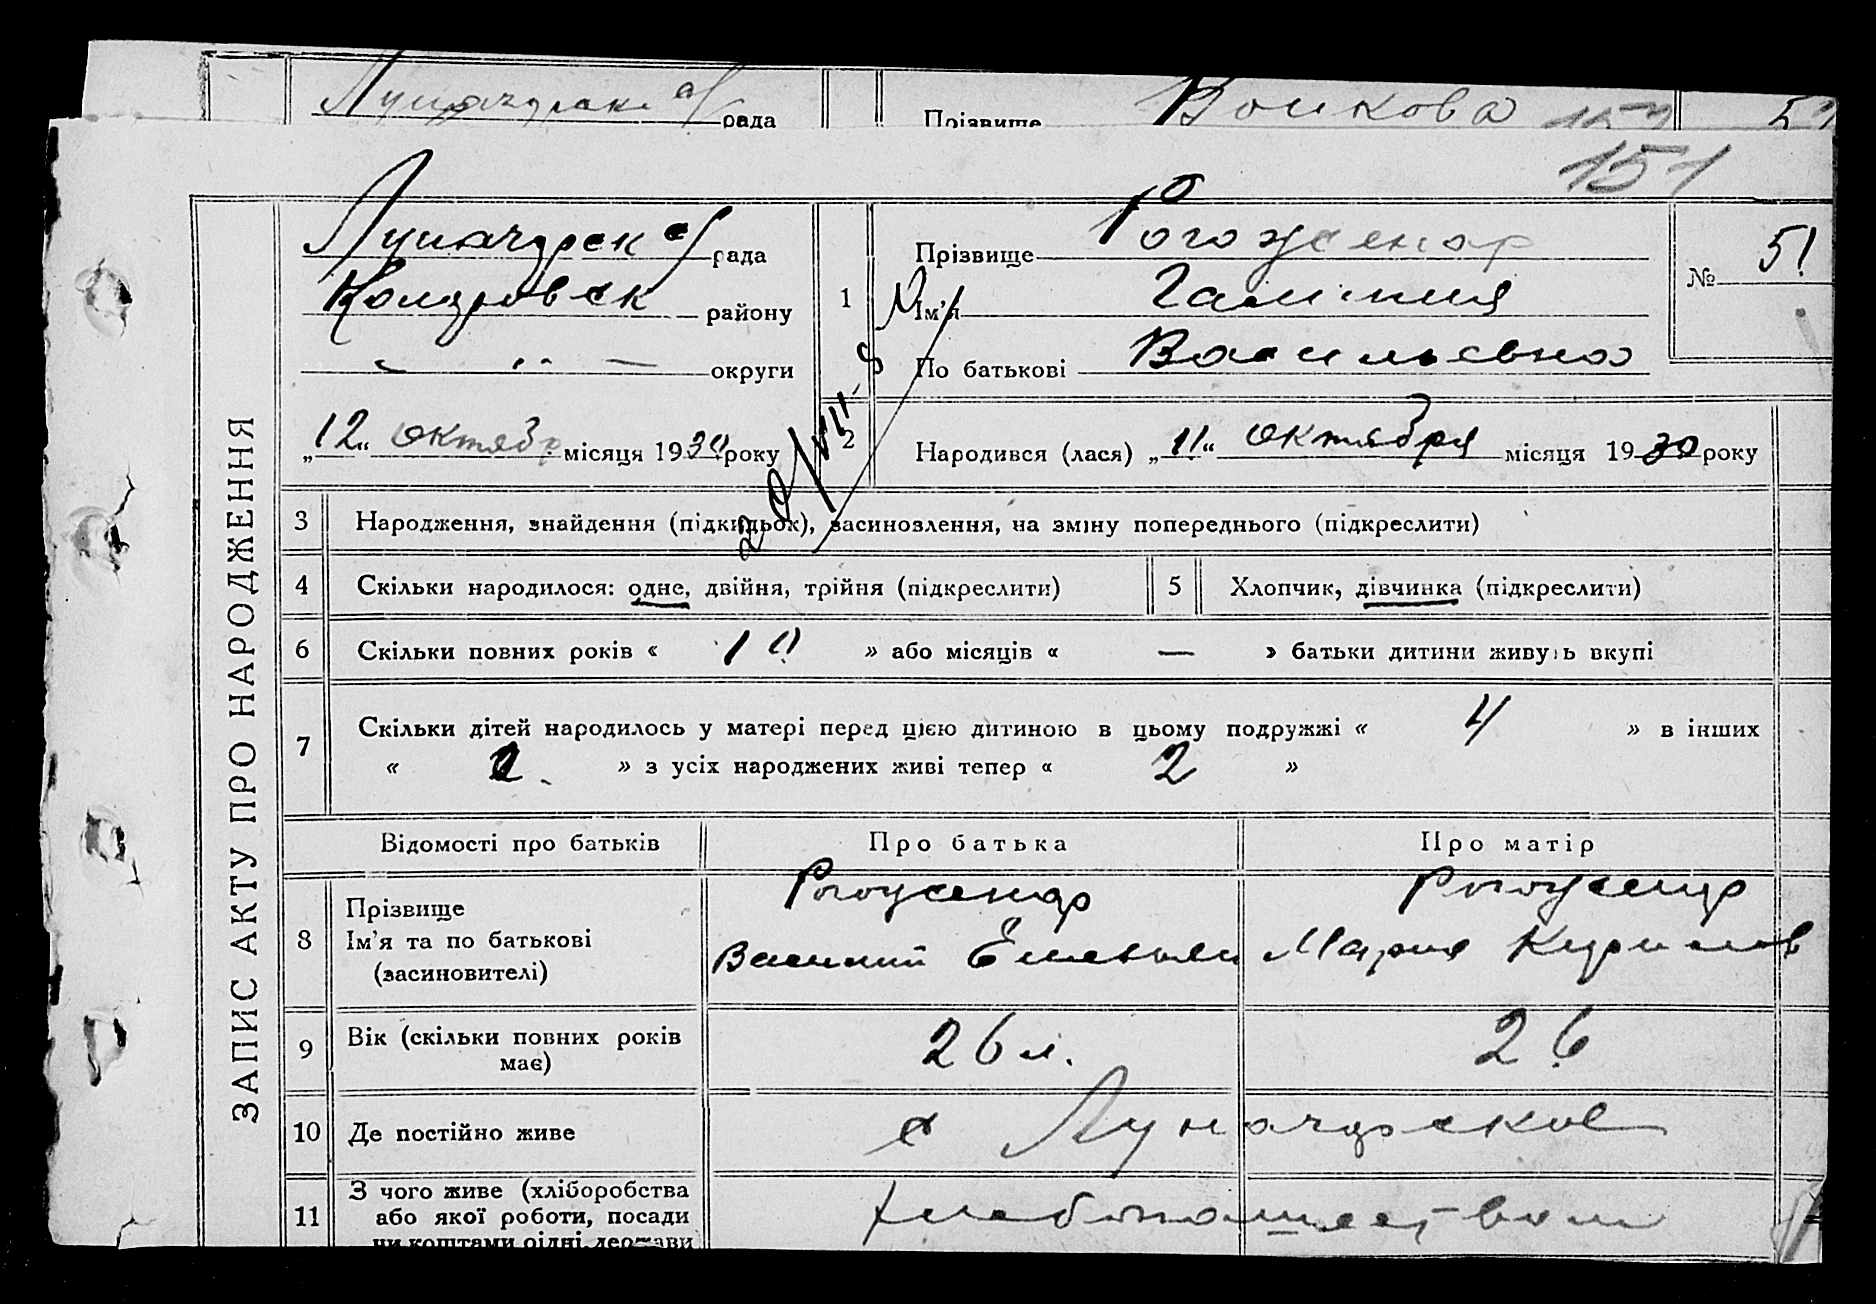 рада
Прізвище Волкова 51
151
ЗАПИС АКТУ ПРО НАРОДЖЕННЯ
Луначарск с/рада
району
округи
„12“ октябр місяця 1930 року
1
Прізвище
Ім'я Галина
По батькові Васильевна
№ 51
2
Народився (лася) „11“ октября місяця 1930 року
3 Народження, знайдення (підкидьок), засиновлення, на зміну попереднього (підкреслити)
4 Скільки народилося: одне, двійня, трійня (підкреслити)
5 Хлопчик, дівчинка (підкреслити)
6 Скільки повних років « 10 » або місяців « — » батьки дитини живуть вкупі
7 Скільки дітей народилось у матері перед цією дитиною в цьому подружжі « 4 » в інших
« » з усіх народжених живі тепер « 2 »
Відомості про батьків Про батька Про матір
8 Прізвище
Ім'я та по батькові
(засиновителі)
Василий Мария Кирилов
9 Вік (скільки повних років має) 26 л. 26
10 Де постійно живе с Луначарское
11 З чого живе (хліборобства
або якої роботи, посади
чи коштами рідні, держави
хлебопашеством